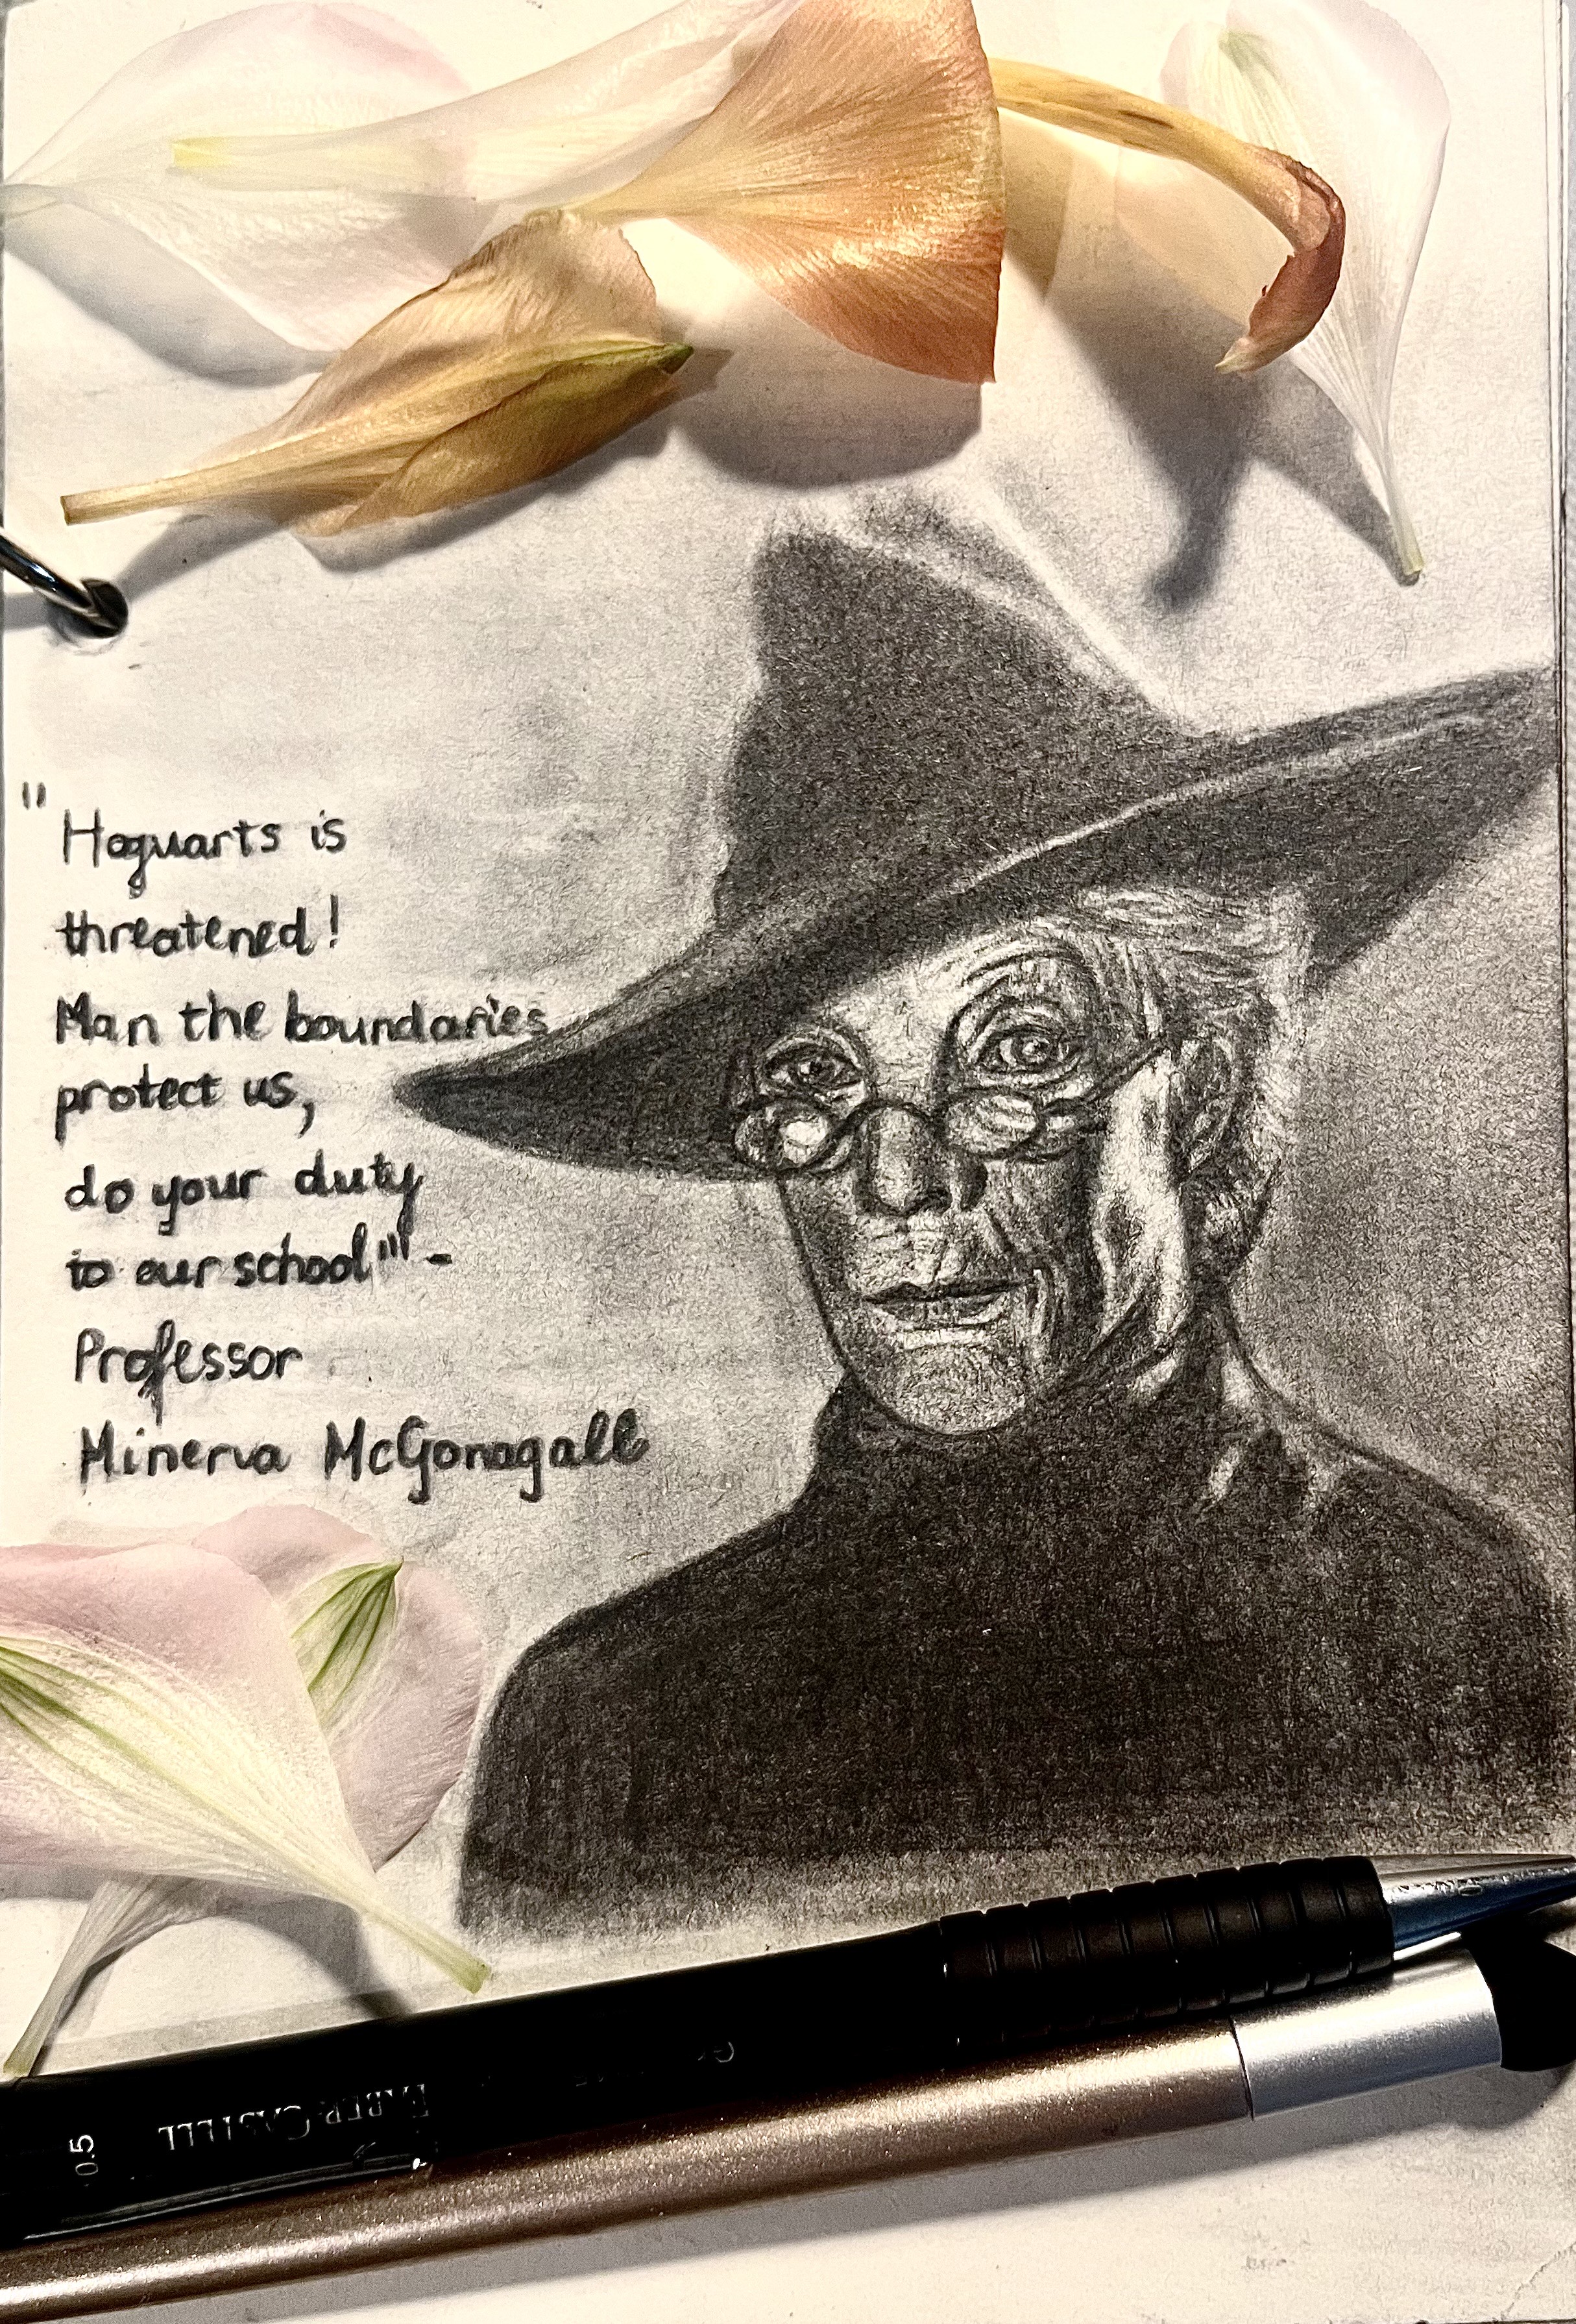 "Hoguarts is
threatened!
Man the boundaries
protect us,
do your duty
to our school"" -
Professor
Minerva McGonagall
FABER-CASTELL
0.5